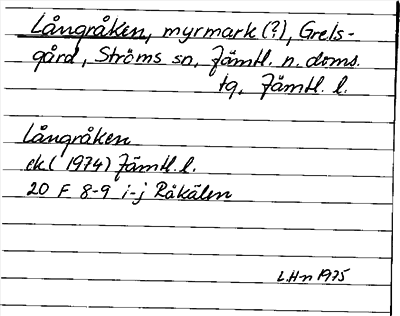 Långråken, myrmark (?), Grels-
gård, Ströms sn, Jämtl. n. doms.
tg, Jämtl. l.
Långråken
ek (1974) Jämtl. l.
20 F 8-9 i-j Råkälen
L.Hn 1975